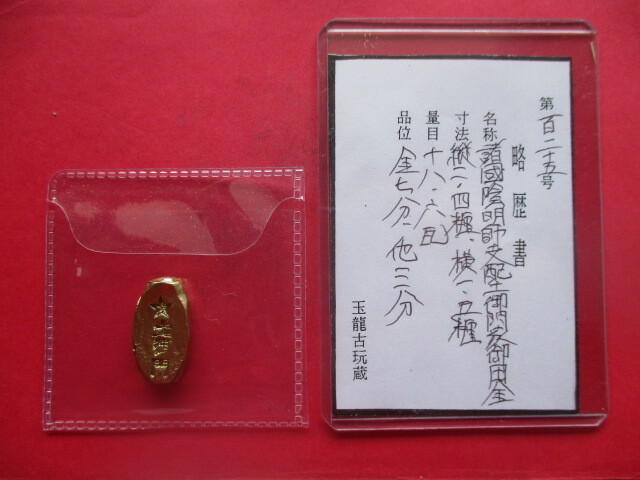 第百二十五号
略歴書
名称 諸國陰明師支配土御門家御用金
寸法 縦二・四糎、横一・五糎
量目 十八・六瓦
品位 金七分・他三分
玉龍古玩蔵
土御門